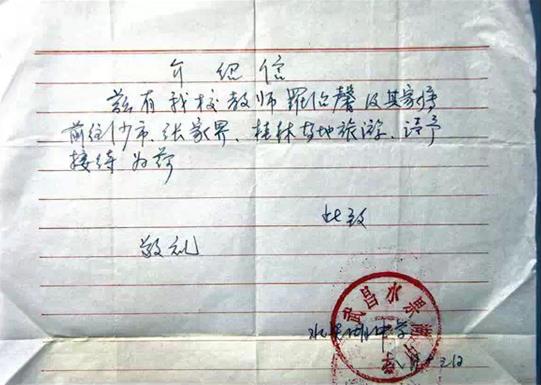 介绍信
兹有我校教师羅伯馨及其家属
前往沙市、张家界、桂林等地旅游，请予
接待为荷
此致
敬礼
水果湖中学
武昌水果湖